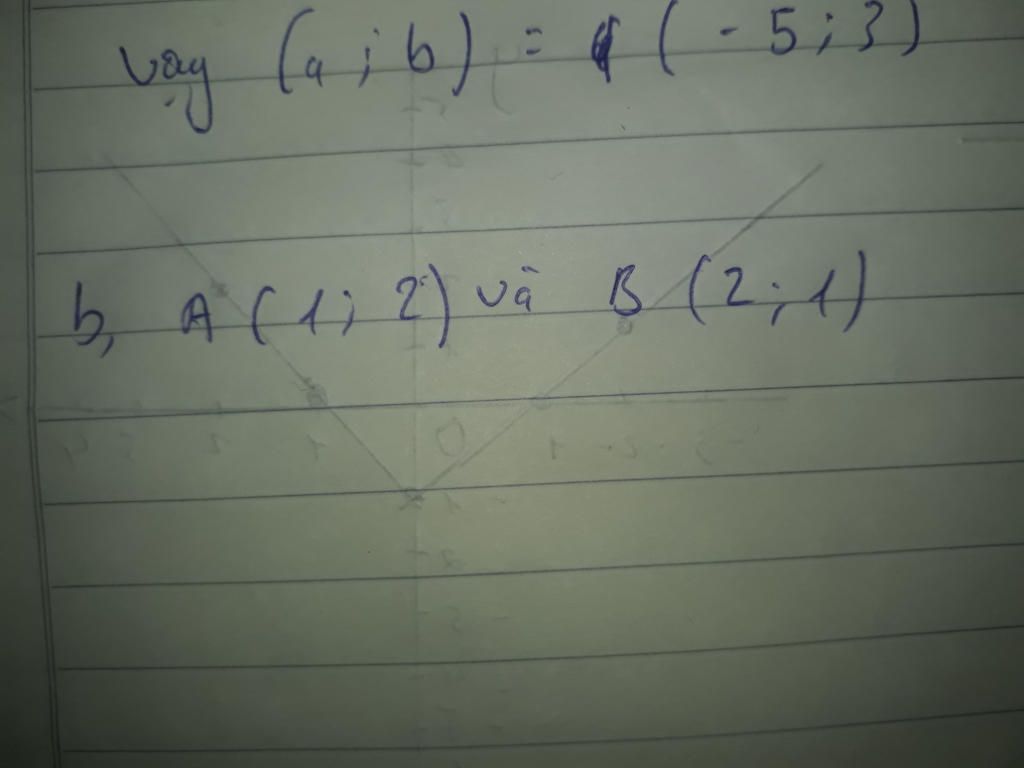 vậy (a ; b) = (-5 ; 3)
b, A (1 ; 2) và B (2 ; 1)